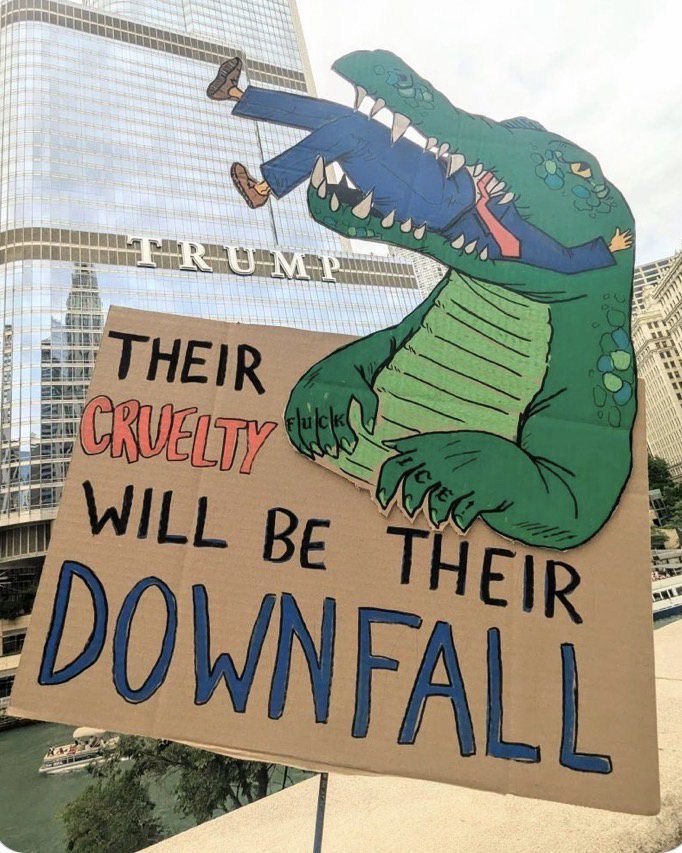 TRUMP
THEIR
CRUELTY
FUCK
ICE!
WILL BE THEIR
DOWNFALL